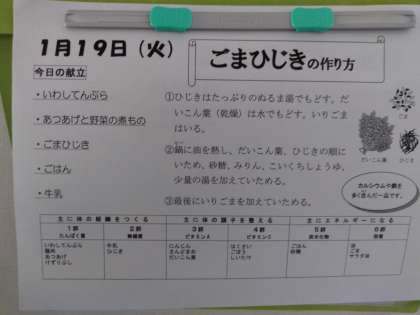 1月19日（火）
ごまひじきの作り方
今日の献立
・いわしてんぷら
・あつあげと野菜の煮もの
・ごまひじき
・ごはん
・牛乳
①ひじきはたっぷりのぬるま湯でもどす。だ
いこん葉（乾燥）は水でもどす。いりごま
はいる。
②鍋に油を熱し、だいこん葉、ひじきの順に
いため、砂糖、みりん、こいくちしょうゆ、
少量の湯を加えていためる。
③最後にいりごまを加えていためる。
ごま
だいこん葉
ひじき
カルシウムや鉄を
多く含んだ一品です。
主に体の組織をつくる
主に体の調子を整える
主にエネルギーになる
1群
2群
3群
4群
5群
6群
たんぱく質
無機質
ビタミンA
ビタミンC
炭水化物
脂質
いわしてんぷら
鶏肉
あつあげ
けずりぶし
牛乳
ひじき
にんじん
さんどまめ
だいこん葉
はくさい
ごぼう
しいたけ
ごはん
砂糖
油
ごま
サラダ油